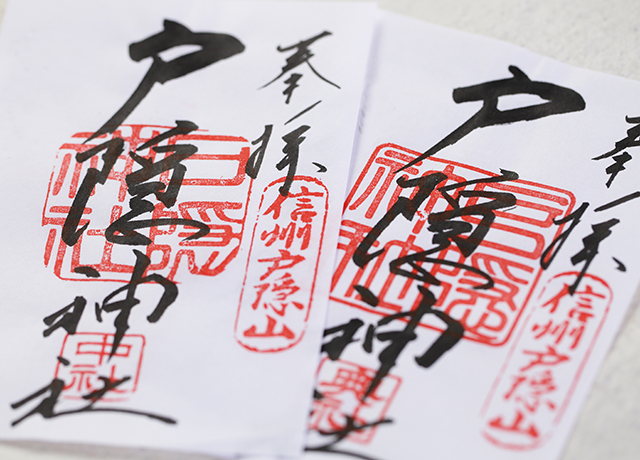 奉拝
信州戸隠山
戸隠神社
戸隠神社
中社
奉拝
信州戸隠山
戸隠神社
戸隠神社
奥社